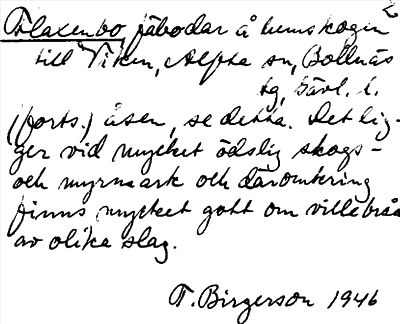 2
Flaxenbo, fäbodar å hemskogen
till Viken, Alfta sn, Bollnäs
tg, Gävl. l.
(forts.) åsen, se detta. Det lig-
ger vid mycket ödslig skogs-
och myrmark och däromkring
finns mycket gott om villebråd
av olika slag.
T. Birgerson 1946